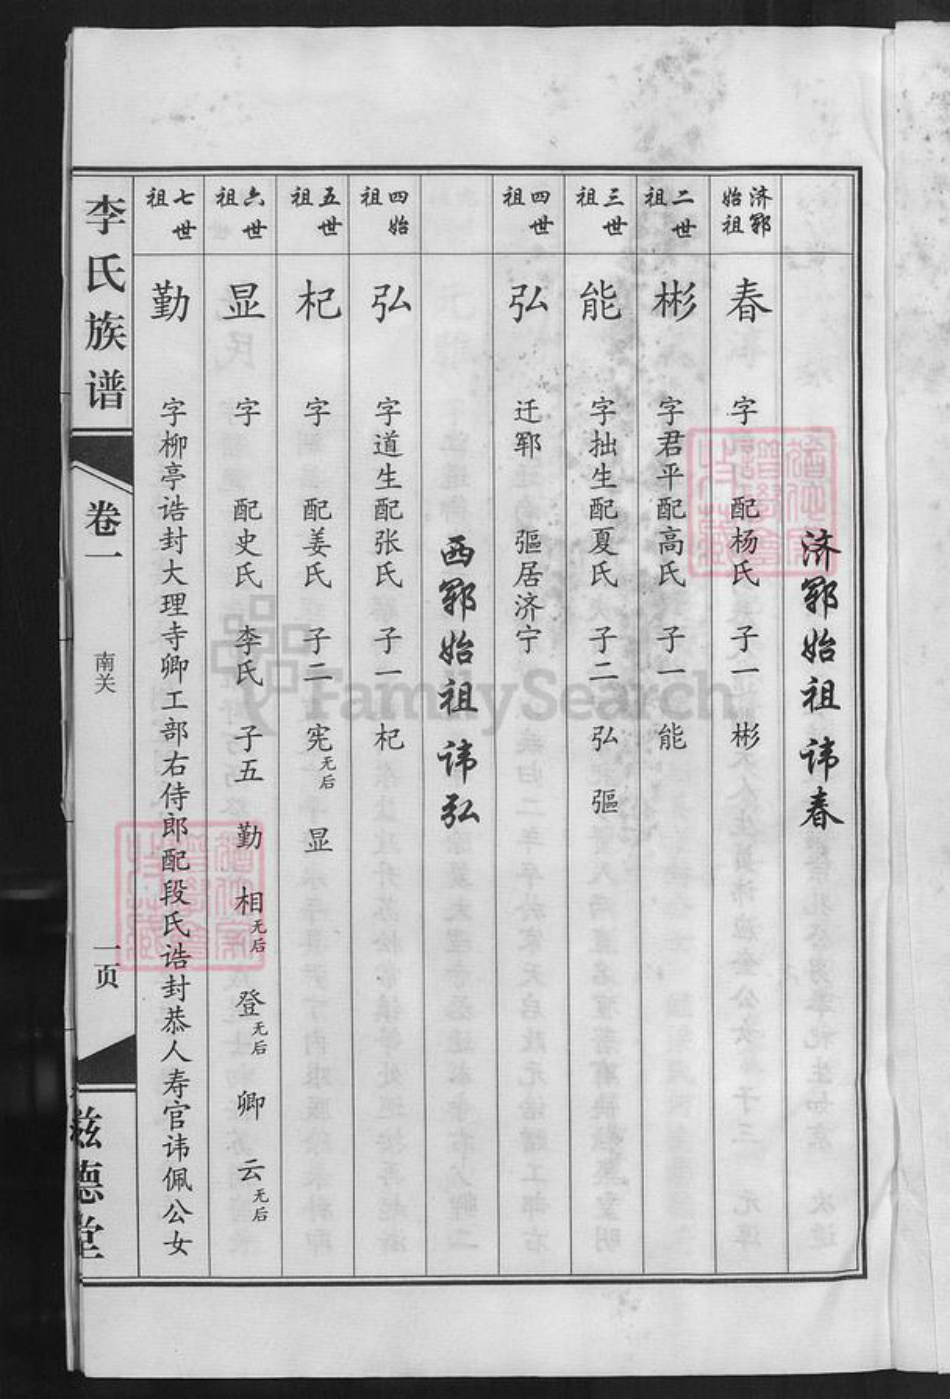 济郓始祖讳春
济郓始祖 春 字 配杨氏 子一 彬
二世祖 彬 字君平配高氏 子一 能
三世祖 能 字拙生配夏氏 子二 弘 彄
四世祖 弘 迁郓 彄居济宁
西郓始祖讳弘
四始祖 弘 字道生配张氏 子一 杞
五世祖 杞 字 配姜氏 子二 宪无后 显
六世祖 显 字 配史氏 李氏 子五 勤 相无后 登无后 卿 云无后
七世祖 勤 字柳亭诰封大理寺卿工部右侍郎配段氏诰封恭人寿官讳佩公女
李氏族谱
卷一
南关
一页
兹德堂
FamilySearch